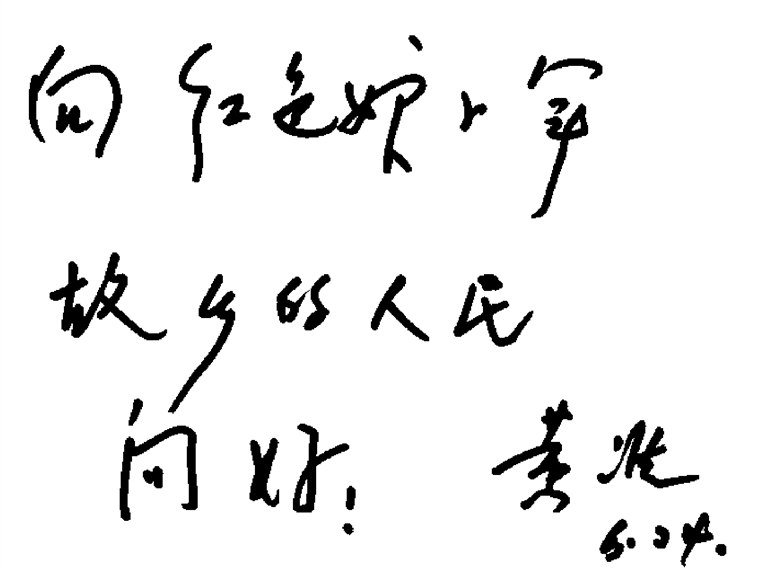 向红色娘子军
故乡的人民
问好!
黄准
6.24.